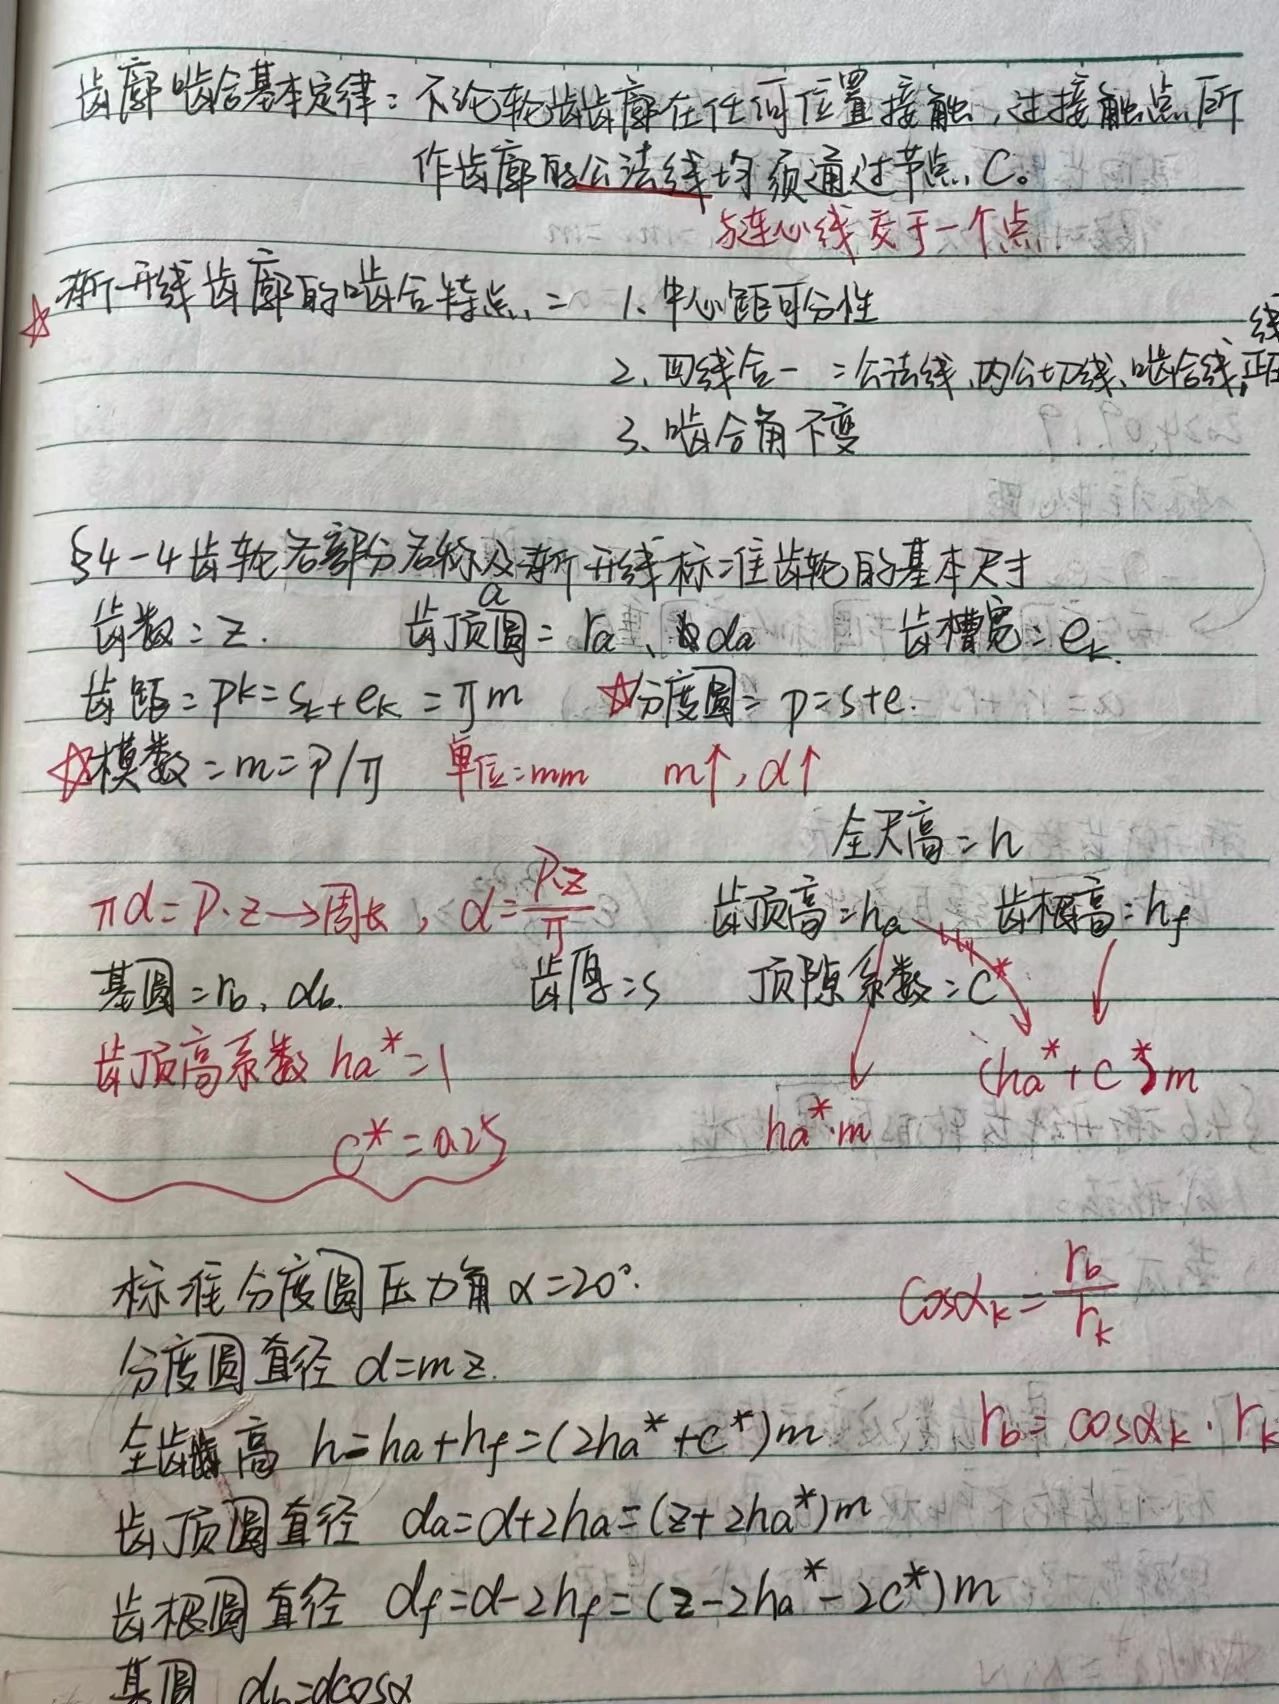 齿廓啮合基本定律：不论轮齿齿廓在任何位置接触，过接触点所
作齿廓的公法线均须通过节点C。
与连心线交于一个点
☆渐开线齿廓的啮合特点：1、中心距可分性
2、四线合一：公法线、内公切线、啮合线、正压线
3、啮合角不变
§4-4 齿轮各部分名称及渐开线标准齿轮的基本尺寸
齿数：z. 齿顶圆：ra、da 齿槽宽：ek
齿距：pk=sk+ek=πm ☆分度圆：p=s+e.
☆模数：m=P/π 单位：mm m↑,d↑
全尺高：h
πd=P·z→周长，d=P·z/π 齿顶高：ha 齿根高：hf
基圆：rb、db. 齿厚：s 顶隙系数：c*
齿顶高系数 ha*=1 (ha*+c*)m
c*=0.25 ha*·m
标准分度圆压力角α=20°. cosαk=rb/rk
分度圆直径 d=mz.
全齿高 h=ha+hf=(2ha*+c*)m rb=cosαk·rk
齿顶圆直径 da=d+2ha=(z+2ha*)m
齿根圆直径 df=d-2hf=(z-2ha*-2c*)m
基圆 db=dcosα